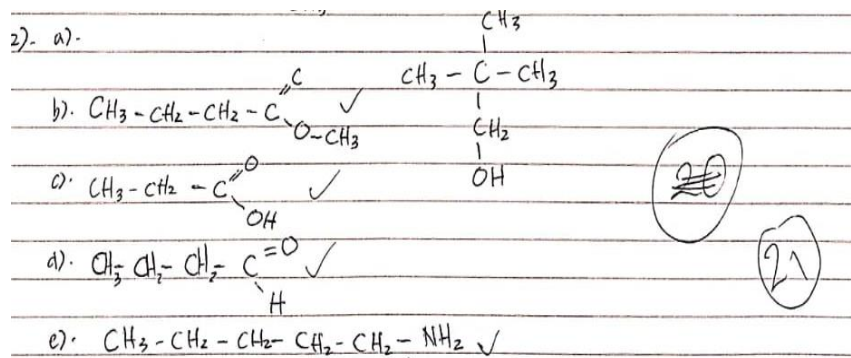 CH3
2). a).
CH3 - C - CH3
CH2
OH
b). CH3 - CH2 - CH2 - C =C O-CH3 ✓
c). CH3 - CH2 - C =O OH ✓
d). CH3 - CH2 - CH2 - C =O H ✓
e). CH3 - CH2 - CH2 - CH2 - CH2 - NH2 ✓
20
21